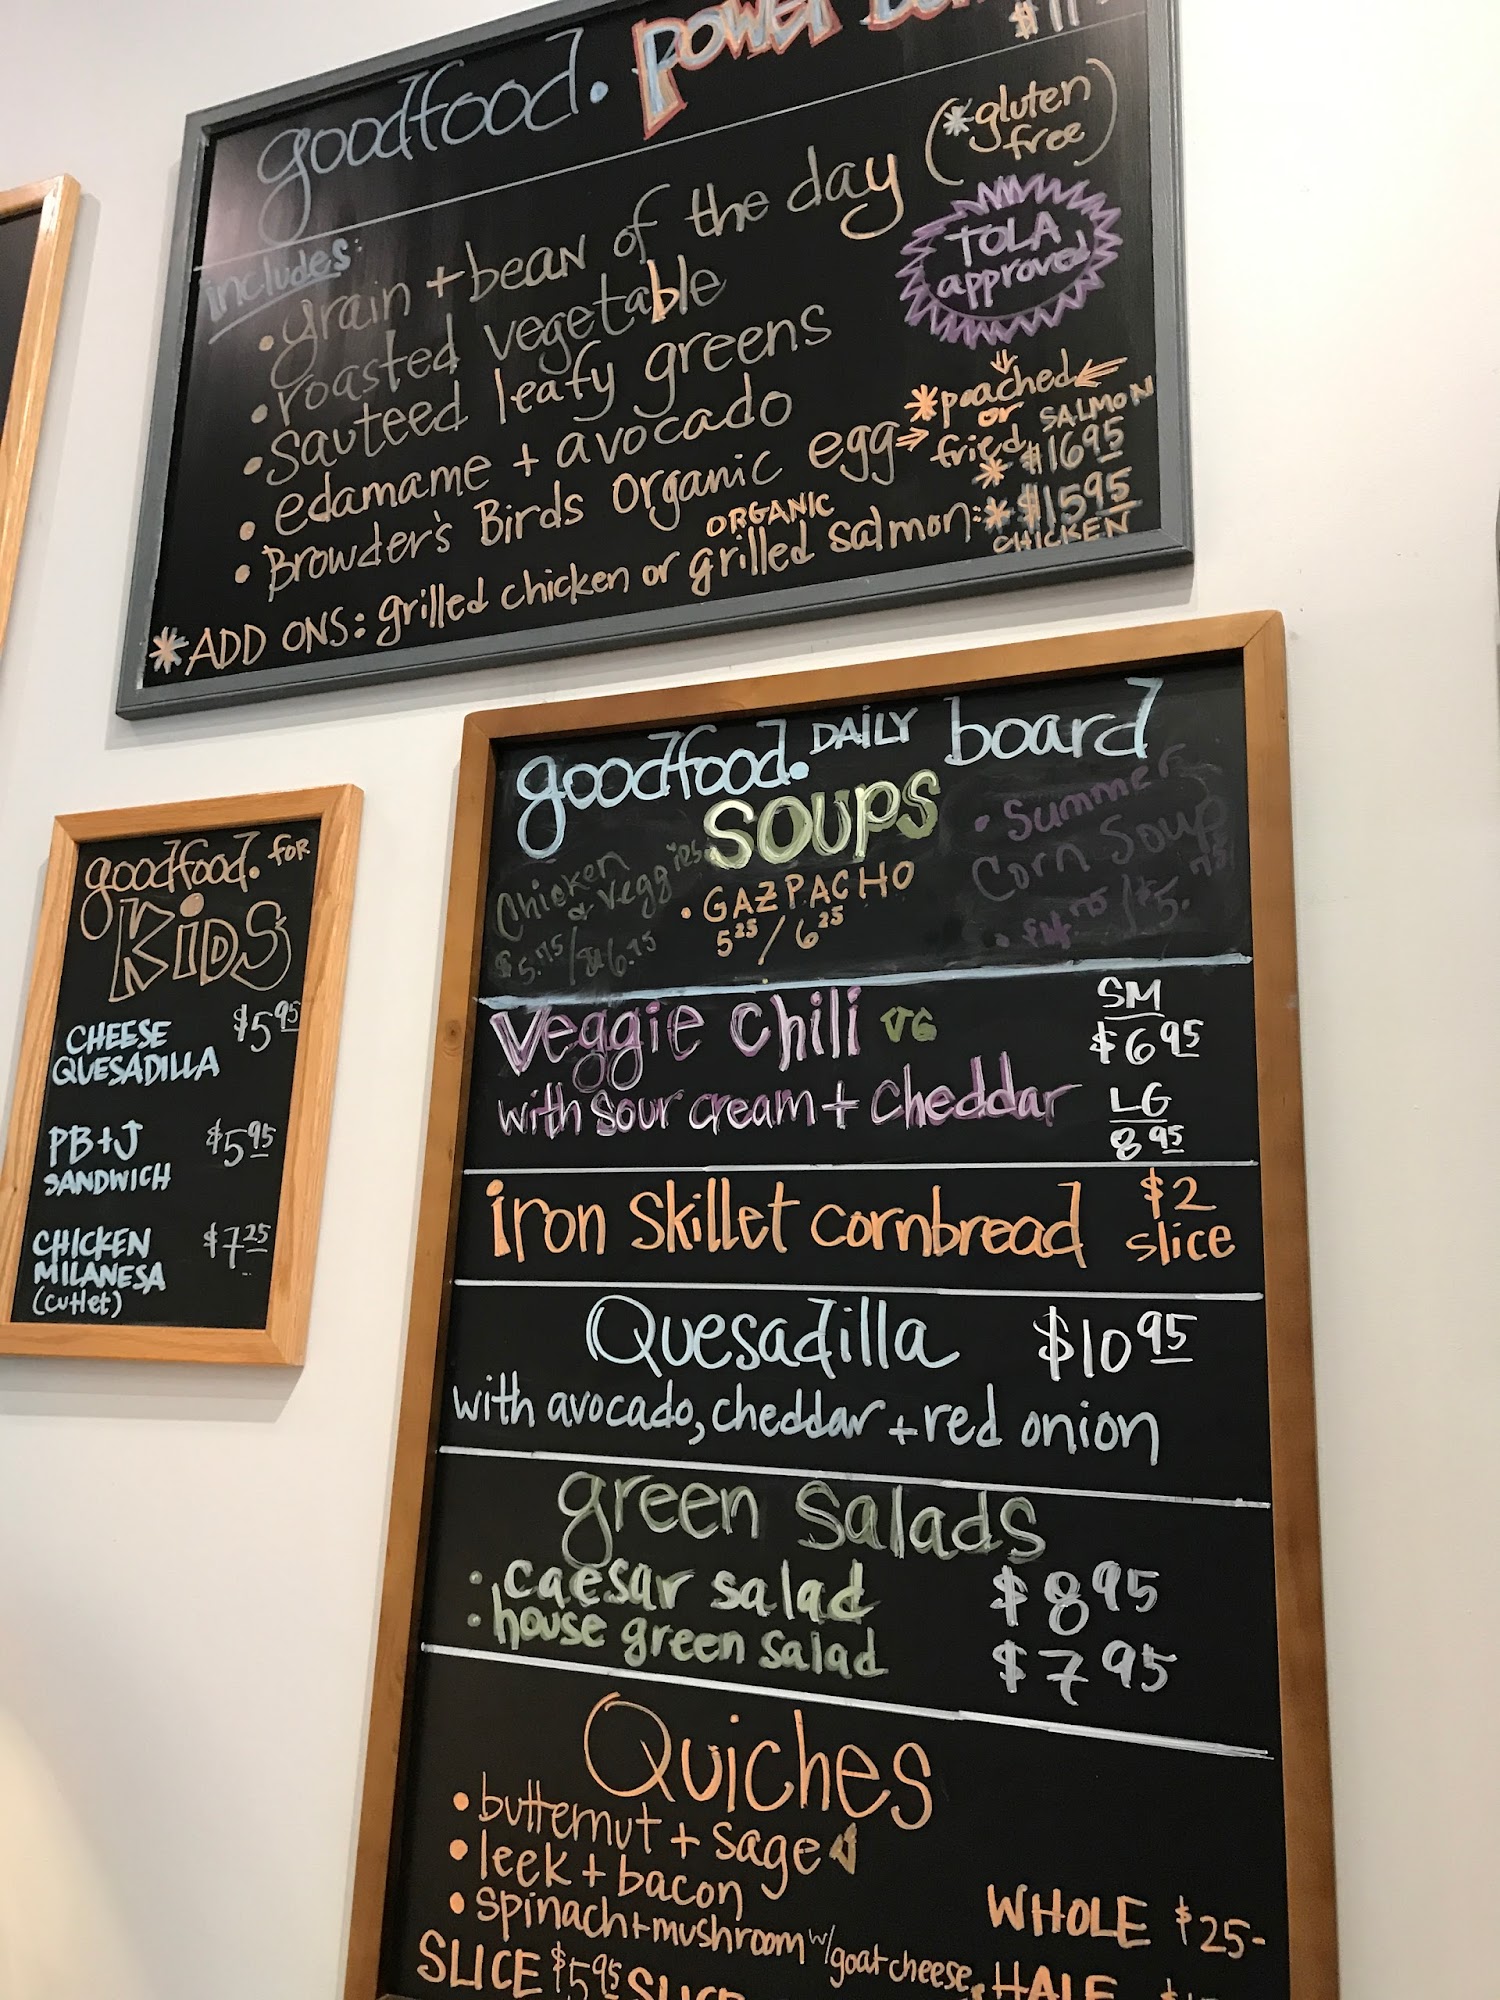 goodfood. power
includes:
(*gluten
free)
• grain + bean of the day
• roasted vegetable
• sauteed leafy greens
• edamame + avocado
• Browder's Birds organic egg
TOLA
approved
*poached
or
fried
SALMON
* $16 95
* $15 95
CHICKEN
ORGANIC
*ADD ONS: grilled chicken or grilled salmon:
goodfood. FOR
KIDS
CHEESE $5 95
QUESADILLA
PB+J $5 95
SANDWICH
CHICKEN $7 25
MILANESA
(cutlet)
goodfood. DAILY board
SOUPS
Chicken
& veggies
$5.75/$6.75
• GAZPACHO
5 25 / 6 25
• Summer
Corn Soup
Veggie chili VG
with sour cream + cheddar
SM
$6 95
LG
8 95
iron skillet cornbread $2
slice
Quesadilla $10 95
with avocado, cheddar + red onion
green salads
• caesar salad $8 95
• house green salad $7 95
Quiches
• butternut + sage
• leek + bacon
• spinach + mushroom w/goat cheese
WHOLE $25-
SLICE $5 95
HALF